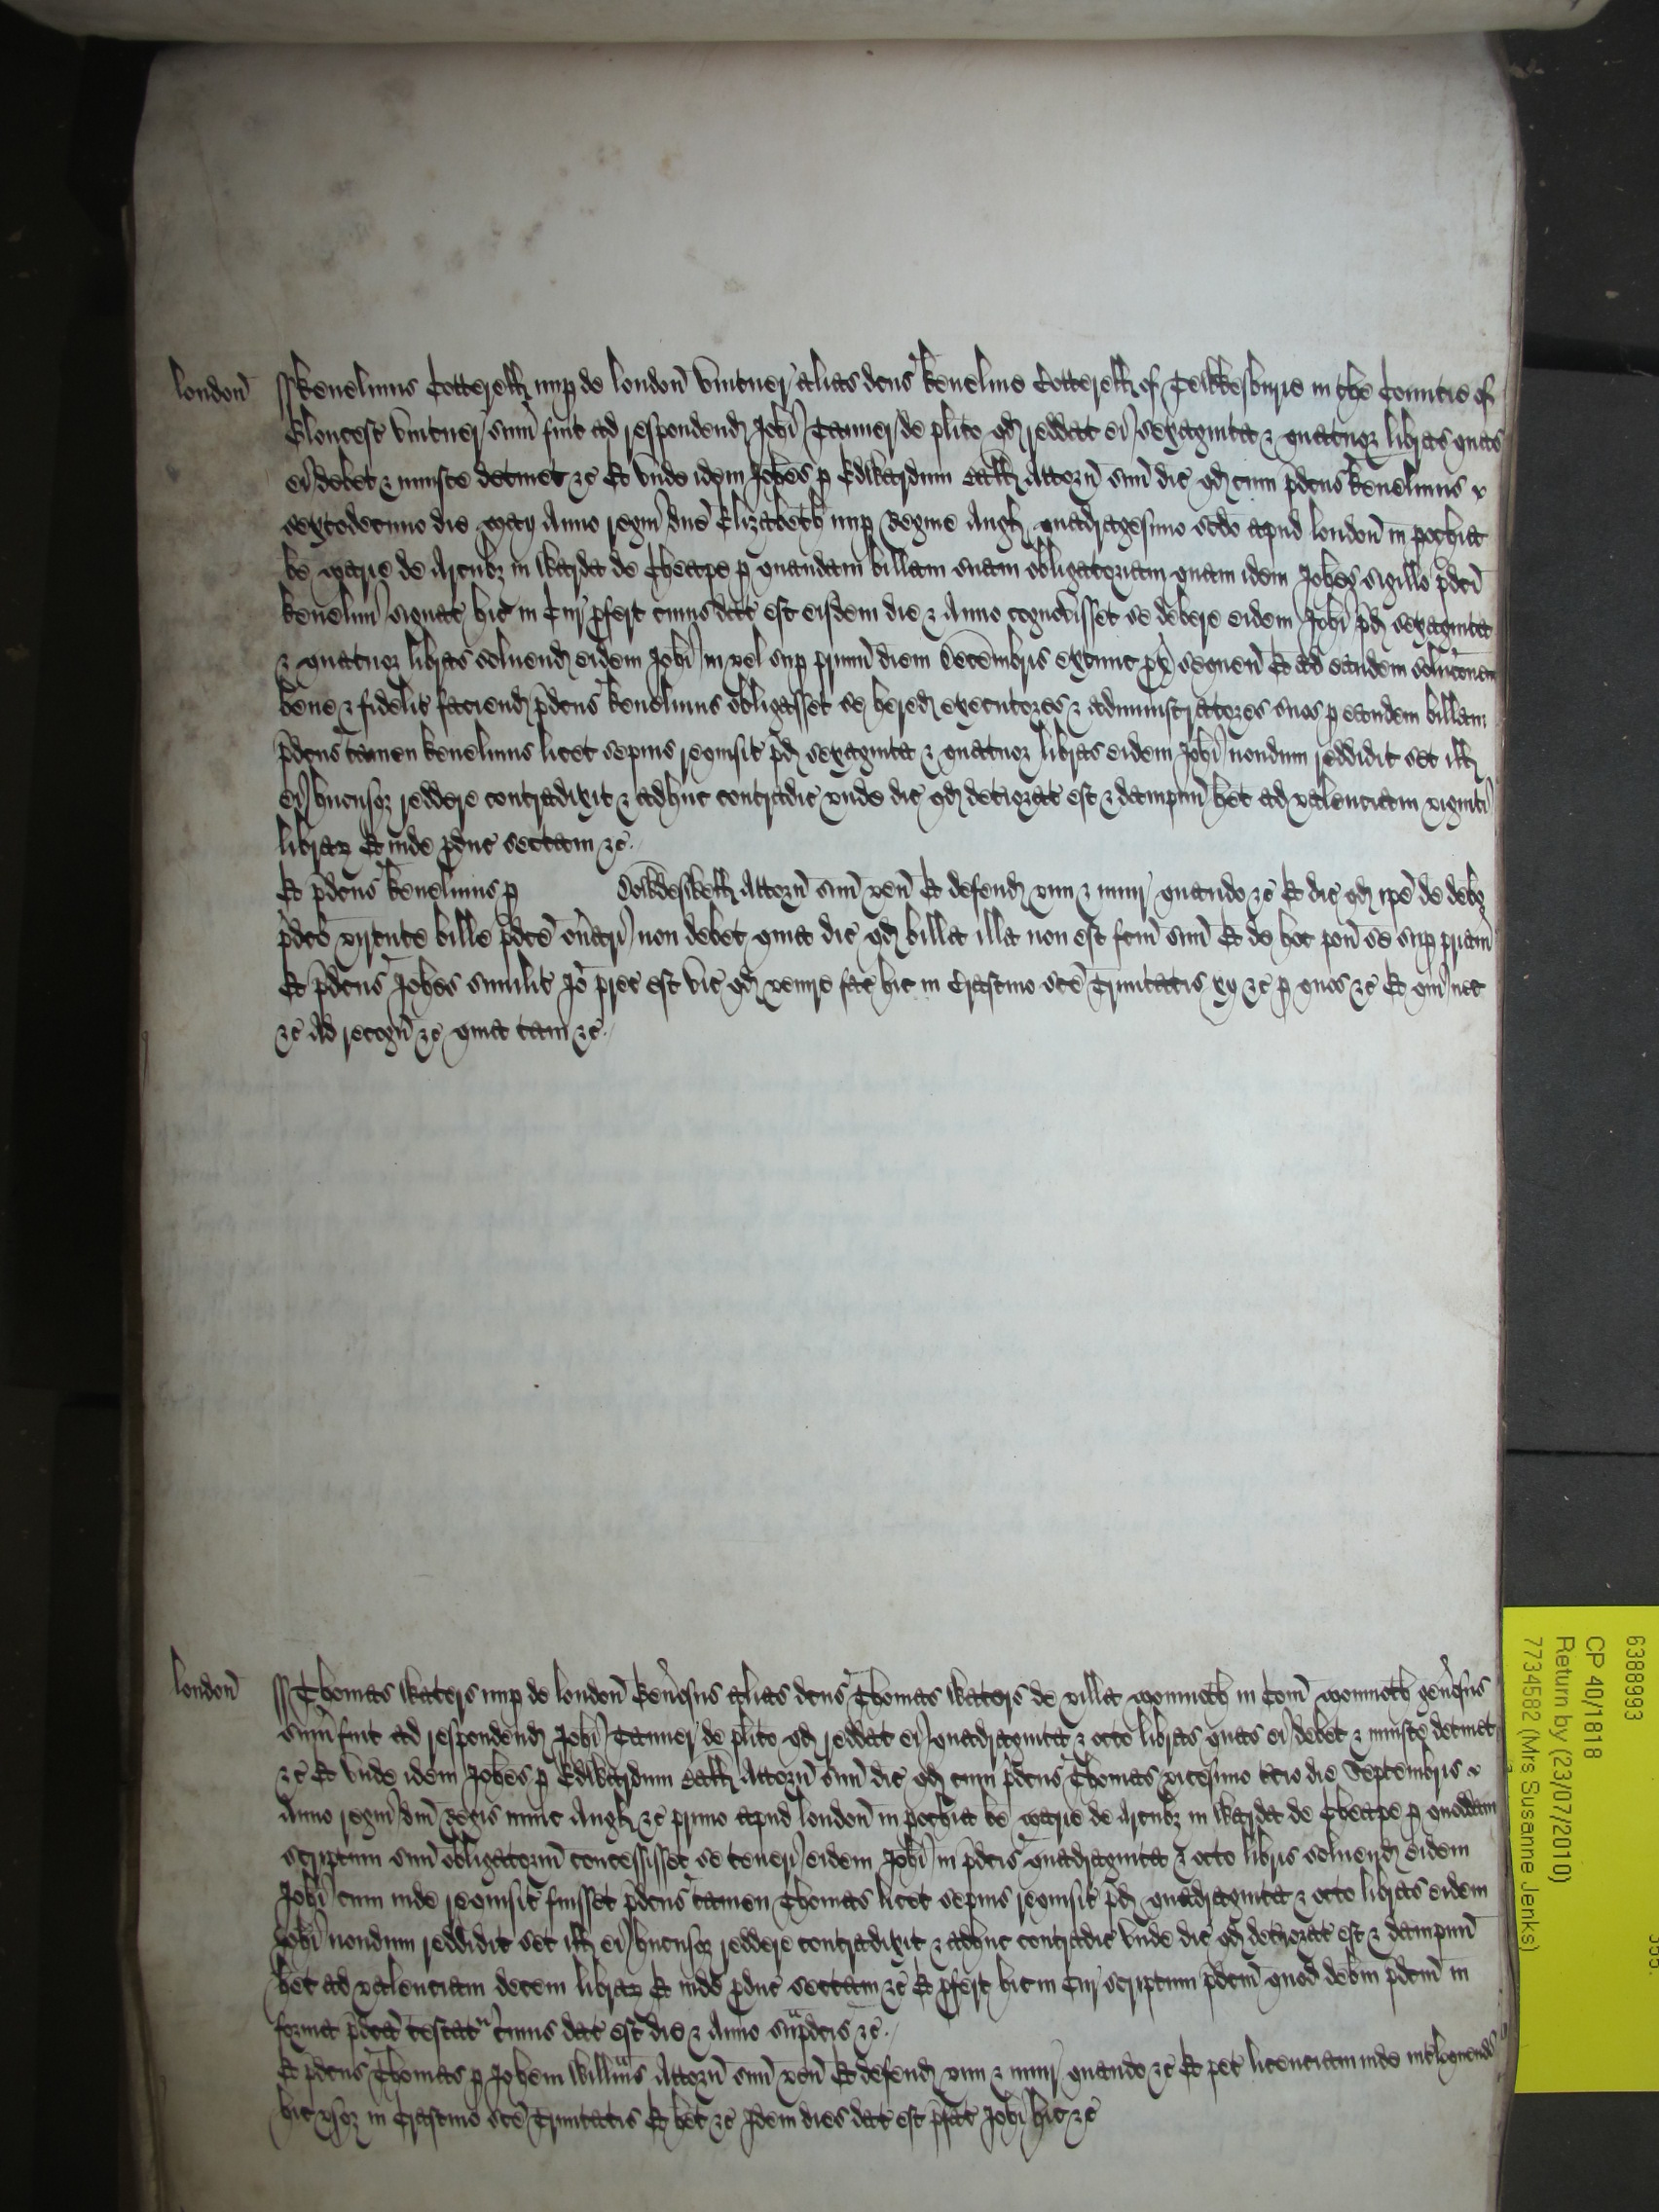 londoñ
Kenelmus Cotterell nup de londoñ Vintner alias dcus Kenelme Cotterell of Tewkesburie in the Countie of
Gloucest Vintner sum fuit ad respondend Johi Tanner de plito qd reddat ei sexaginta & quatuor libras quas
ei debet & iniuste detinet &c Et unde idem Johes p Edwardum attorn suu dic qd cum pdcus Kenelmus
sextodecimo die Maij Anno regni dne Elizabeth nup Regine Angl quadragesimo scdo apud londoñ in pochia
be Marie de Arcubz in Warda de Cheape p quandam billam suam obligatoriam quam idem Johes sigillo pdci
Kenelmi signat hic in Cur pfert cuius dat est eisdem die & Anno cognovisset se debere eidem Johi pd sexaginta
& quatuor libras solvend eidem Johi in vel sup primu diem Decembris extunc px sequen Et ad eandem soluconem
bene & fidelit faciend pdcus Kenelmus obligasset se hered executores & administratores suos p eandem billam
pdcus tamen Kenelmus licet sepius requisit pd sexaginta & quatuor libras eidem Johi nondum reddidit set ill
ei hucusqz reddere contradixit & adhuc contradic unde dic qd deteriorat est & dampnu het ad valenciam viginti
librar Et inde pduc sectam &c
Et pdcus Kenelmus p attorn suu ven Et defend vim & iniur quando &c Et dic qd ipe de debo
pdco virtute bille pdce onari non debet quia dic qd billa illa non est fcm suu Et de hoc pon se sup priam
Et pdcus Johes similit Io prec est vic qd venire fac hic in Crastino sce Trinitatis xij &c p quos &c Et qui nec
&c ad recogn &c quia tam &c
londoñ
Thomas Waters nup de londoñ Generosus alias dcus Thomas Waters de villa Monmoth in Com Monmoth generosus
sum fuit ad respondend Johi Tanner de plito qd reddat ei quadraginta & octo libras quas ei debet & iniuste detinet
&c Et unde idem Johes p Edwardum attorn suu dic qd cum pdcus Thomas vicesimo tcio die Septembris
Anno regni dni Regis nunc Angl &c primo apud londoñ in pochia be Marie de Arcubz in Warda de Cheape p quoddam
scriptum suu obligatoriu concessisset se teneri eidem Johi in pdcis quadraginta & octo libris solvend eidem
Johi cum inde requisit fuisset pdcus tamen Thomas licet sepius requisit pd quadraginta & octo libras eidem
Johi nondum reddidit set ill ei hucusqz reddere contradixit & adhuc contradic Unde dic qd deteriorat est & dampnu
het ad valenciam decem librar Et inde pduc sectam &c Et pfert hic in Cur scriptum pdcm quod debm pdcm in
forma pdca testat cuius dat est die & Anno supdcis &c
Et pdcus Thomas p Johem Willms attorn suu ven Et defend vim & iniur quando &c Et pet licenciam inde intloquendi
hic usqz in Crastino sce Trinitatis Et het &c Idem dies dat est pfat Johi hic &c
6388993
CP 40/1818
Return by (23/07/2010)
7734582 (Mrs Susanne Jenks)